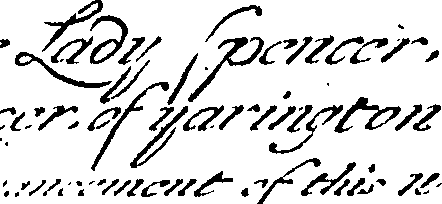 Lady Spencer.
cer. of Yarington
ancement of this